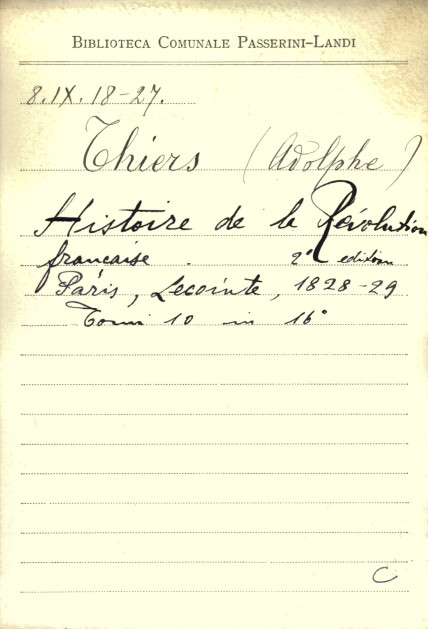 BIBLIOTECA COMUNALE PASSERINI-LANDI
8.IX.18-27.
Thiers (Adolphe)
Histoire de la Révolution
française . 2ª edition
Paris, Lecointe, 1828-29
Tomi 10 in 16°
C